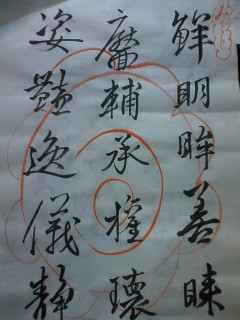 鮮明眸善睞
靨輔承権瓌
姿豔逸儀静